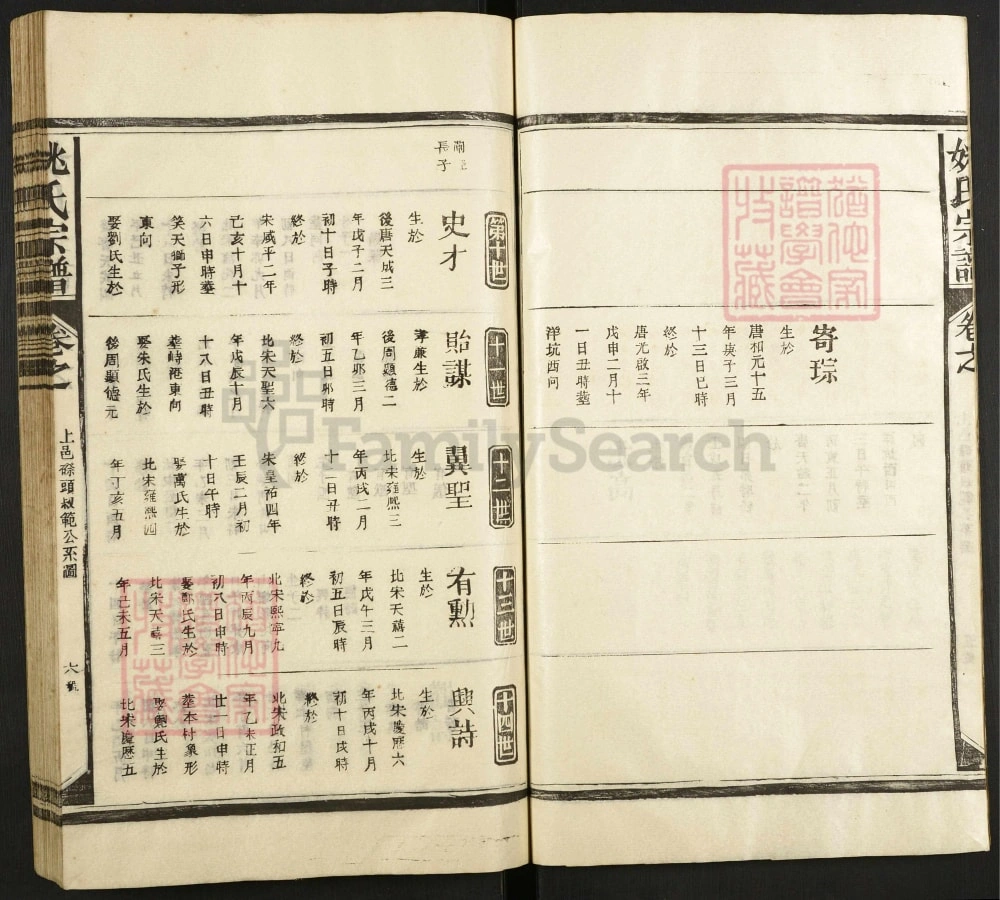 姚氏宗譜
卷之
寄琮
生於
唐和元十五
年庚子三月
十三日巳時
終於
唐光啟三年
戊申二月十
一日丑時塟
洋坑酉向
第十世
長子
史才
生於
後唐天成三
年戊子二月
初十日子時
終於
宋咸平二年
己亥十月十
六日申時塟
笑天獅子形
東向
娶劉氏生於
十一世
貽謀
孝廉生於
後周顯德二
年乙卯三月
初五日卯時
終於
北宋天聖六
年戊辰十月
十八日丑時
塟峙港東向
娶朱氏生於
後周顯德元
十二世
翼聖
生於
北宋雍熙三
年丙戌二月
十二日丑時
終於
宋皇祐四年
壬辰二月初
十日午時
娶萬氏生於
北宋雍熙四
年丁亥五月
十三世
有勲
生於
北宋天禧二
年戊午三月
初五日辰時
終於
北宋熙寧九
年丙辰九月
初八日申時
娶鄭氏生於
北宋天禧三
年己未五月
十四世
興詩
生於
北宋慶厯六
年丙戌十月
初十日戌時
終於
北宋政和五
年乙未正月
廿一日申時
塟本村象形
娶鮑氏生於
北宋慶歷五
姚氏宗譜
卷之
上邑磜頭叔範公系圖
六
FamilySearch